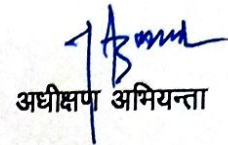 अधीक्षण अभियन्ता